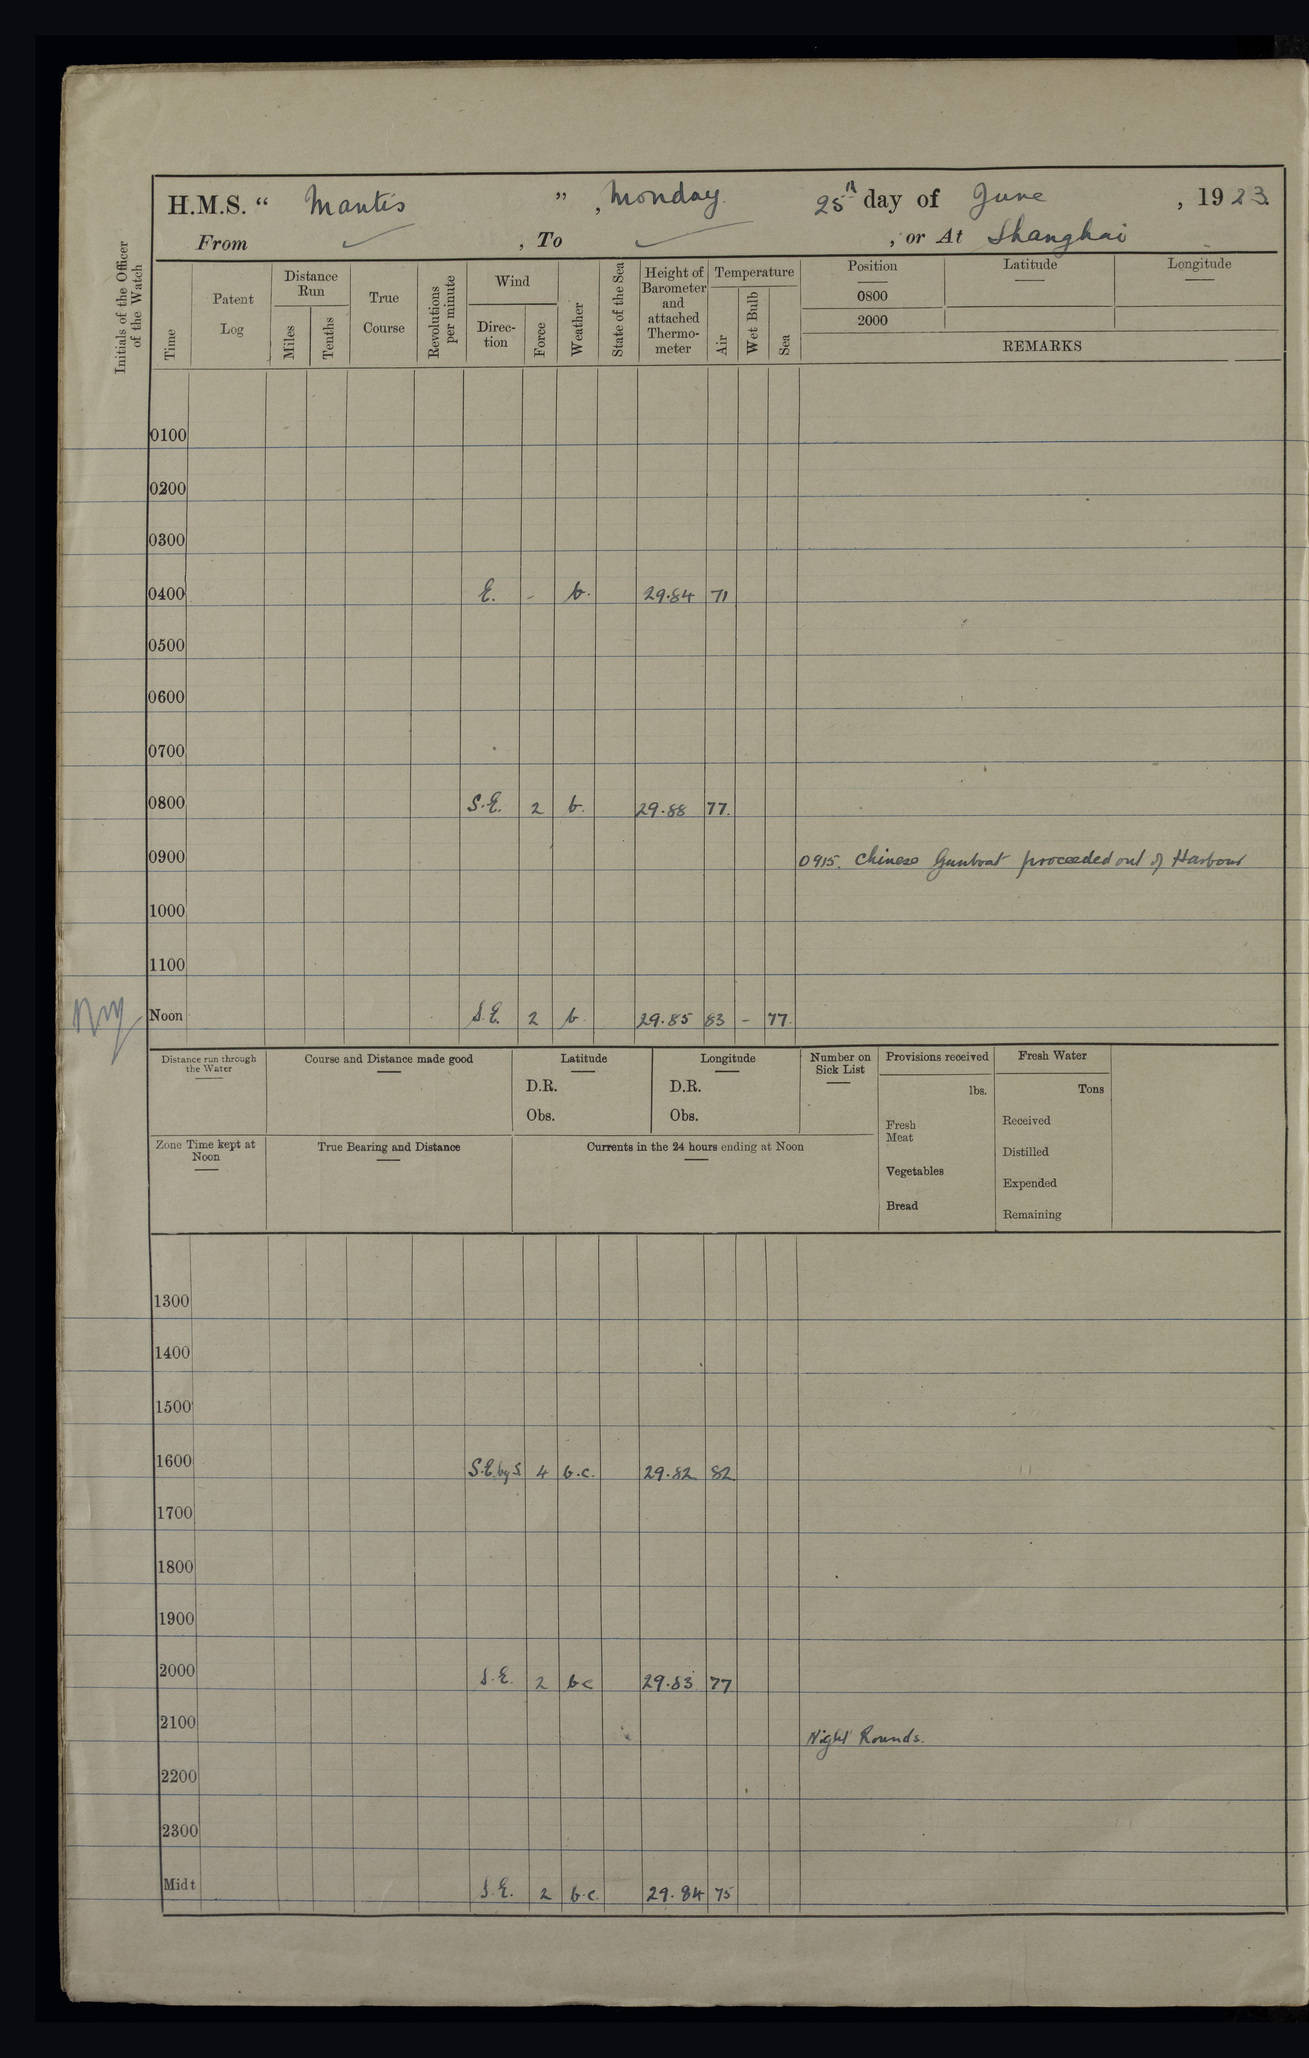 H.M.S. “ Mantis ” , Monday 25th day of June , 1923.
From , To , or At Shanghai
Initials of the Officer of the Watch
Time
Patent Log
Distance Run
Miles
Tenths
True Course
Revolutions per minute
Wind
Direc-tion
Force
Weather
State of the Sea
Height of Barometer and attached Thermo-meter
Temperature
Air
Wet Bulb
Sea
Position Latitude Longitude
0800
2000
REMARKS
0100
0200
0300
0400 E. - b. 29.84 71
0500
0600
0700
0800 S.E. 2 b. 29.88 77.
0900 0915. Chinese Gunboat proceeded out of Harbour
1000
1100
Noon S.E. 2 b. 29.85 83 - 77.
Distance run through the Water
Course and Distance made good
Latitude
D.R.
Obs.
Longitude
D.R.
Obs.
Number on Sick List
Provisions received
lbs.
Fresh Meat
Vegetables
Bread
Fresh Water
Tons
Received
Distilled
Expended
Remaining
Zone Time kept at Noon
True Bearing and Distance
Currents in the 24 hours ending at Noon
1300
1400
1500
1600 S.E. by S 4 b.c. 29.82 82
1700
1800
1900
2000 S.E. 2 bc 29.83 77
2100 Night Rounds.
2200
2300
Midt S.E. 2 b.c. 29.84 75